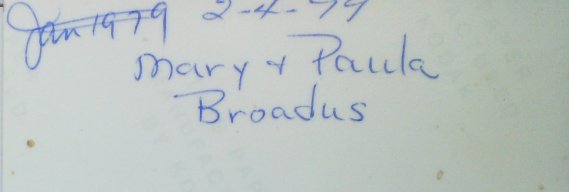 Jan 1979 2-4-79
Mary + Paula
Broadus